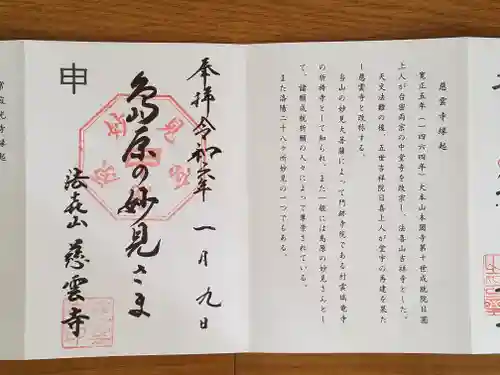 慈雲寺縁起
寛正五年(一四六四年)大本山本圀寺第十世成就院日圓
上人が台密両宗の中堂寺を改宗し、法喜山吉祥寺とした。
天文法難の後、五世吉祥院日喜上人が堂宇の再建を果た
し慈雲寺と改称する。
当山の妙見大菩薩によって門跡寺院である村雲瑞竜寺
の祈祷寺として知られ、また一般には島原の妙見さんとし
て、諸願成就祈願の人々によって尊崇されている。
また洛陽二十八ヶ所妙見の一つでもある。
奉拝 令和二年 一月九日
島原の妙見さま
法喜山 慈雲寺
申
常寂光寺縁起